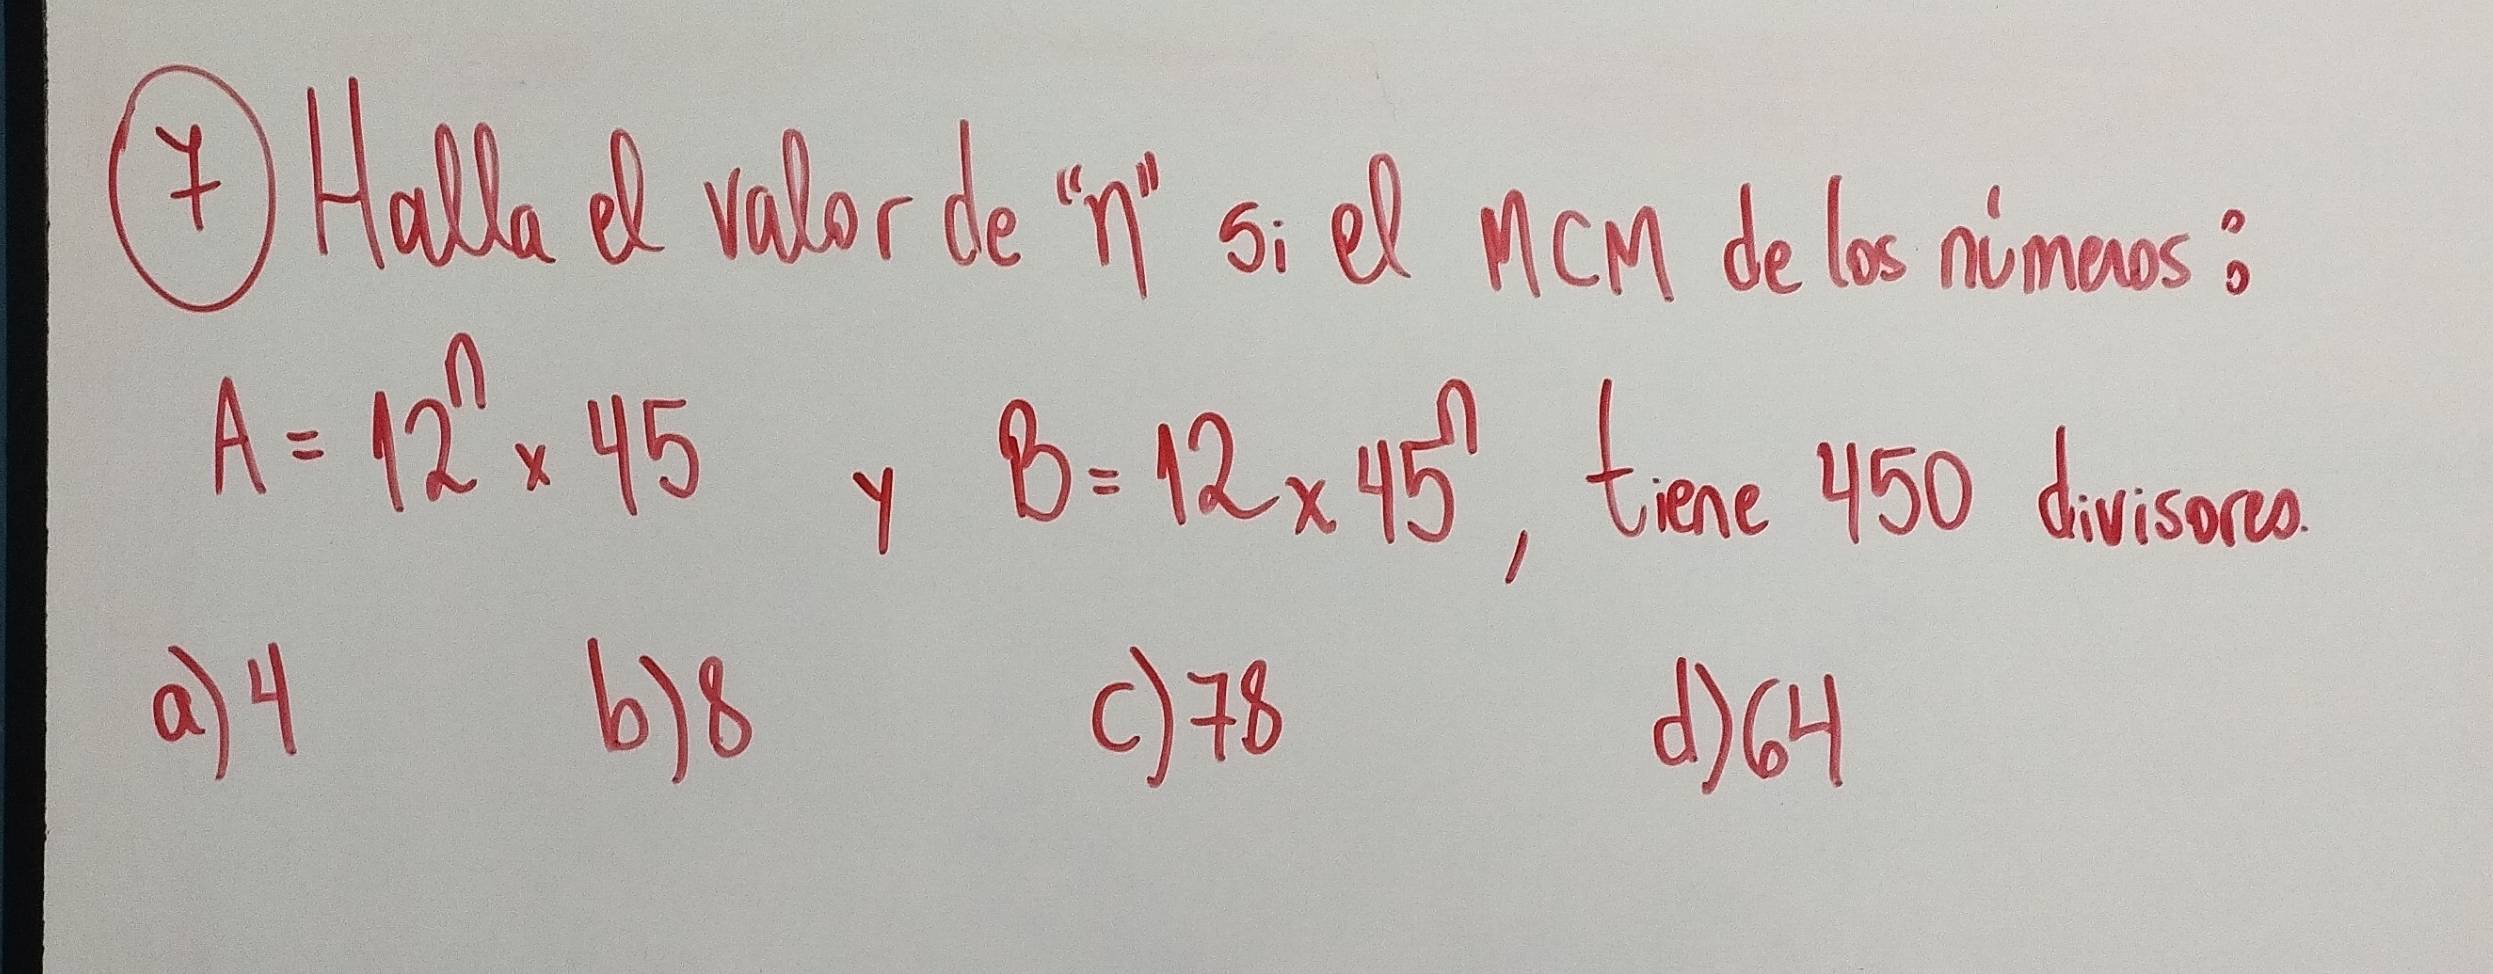 7 Halla el valor de "n" si el MCM de los números:
A = 12ⁿ x 45 y B = 12 x 45ⁿ, tiene 450 divisores.
a) 4 b) 8 c) 78 d) 64